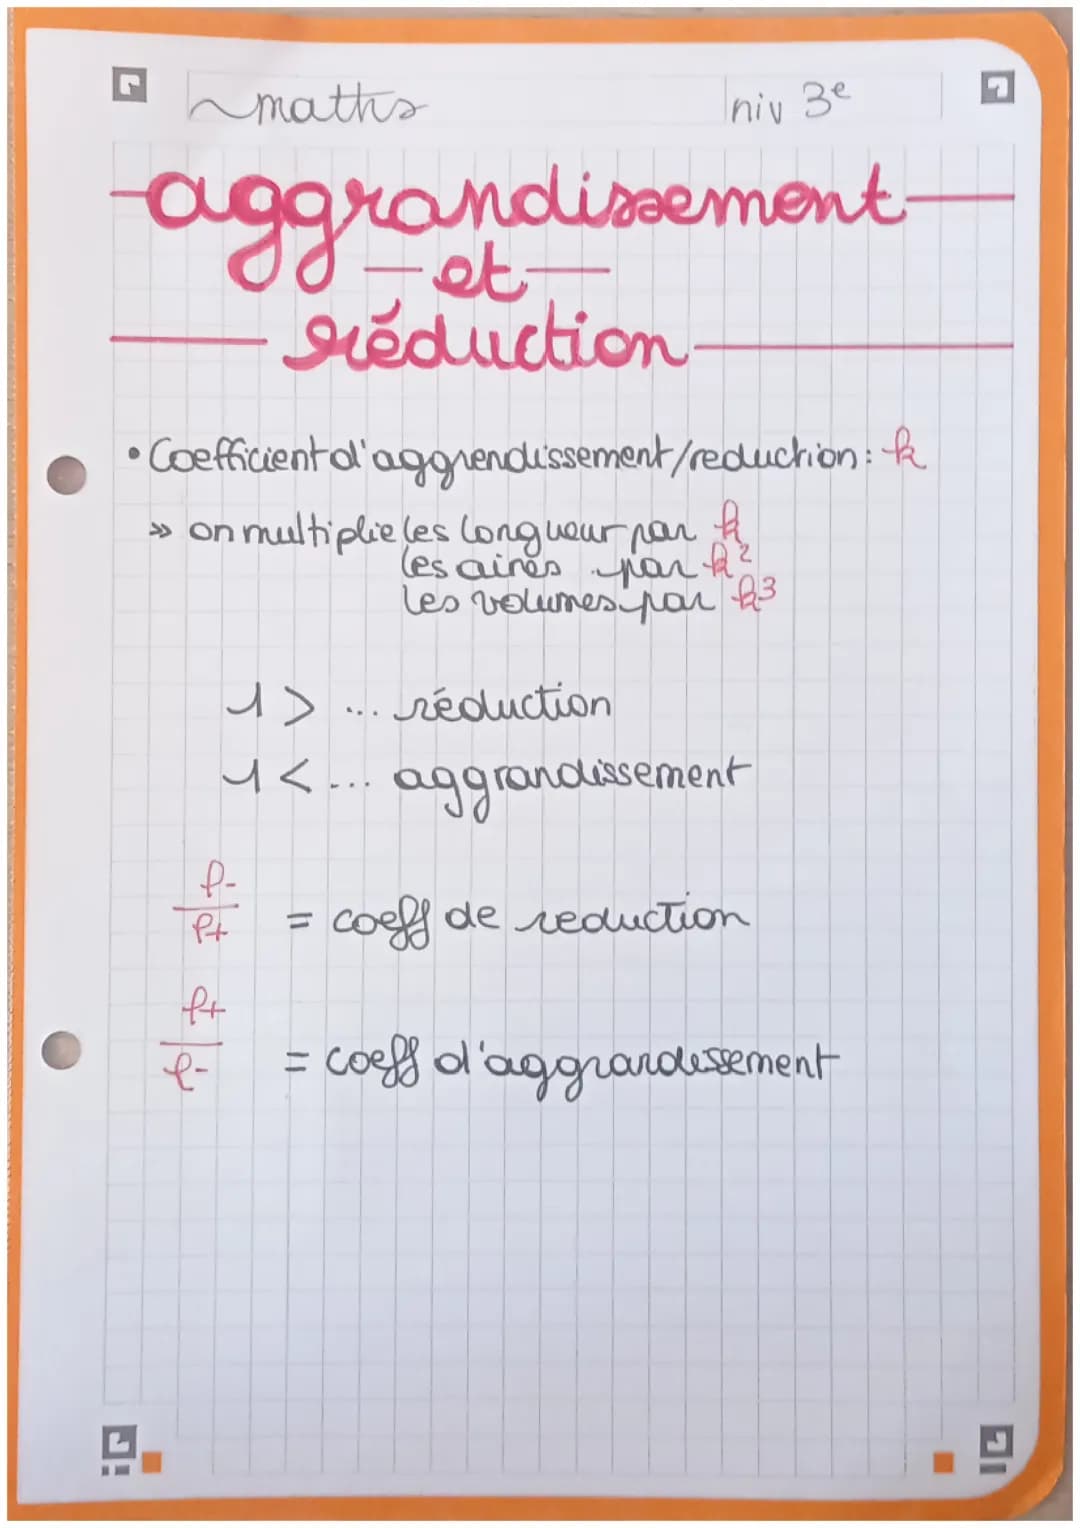 maths niv 3e
aggrandissement
et
réduction
• Coefficient d'aggrendissement/reduction : k
» on multiplie les longueur par k
les aires par k²
les volumes par k³
1 > ... réduction
1 < ... aggrandissement
l-
l+ = coeff de reduction
l+
l- = coeff d'aggrandissement